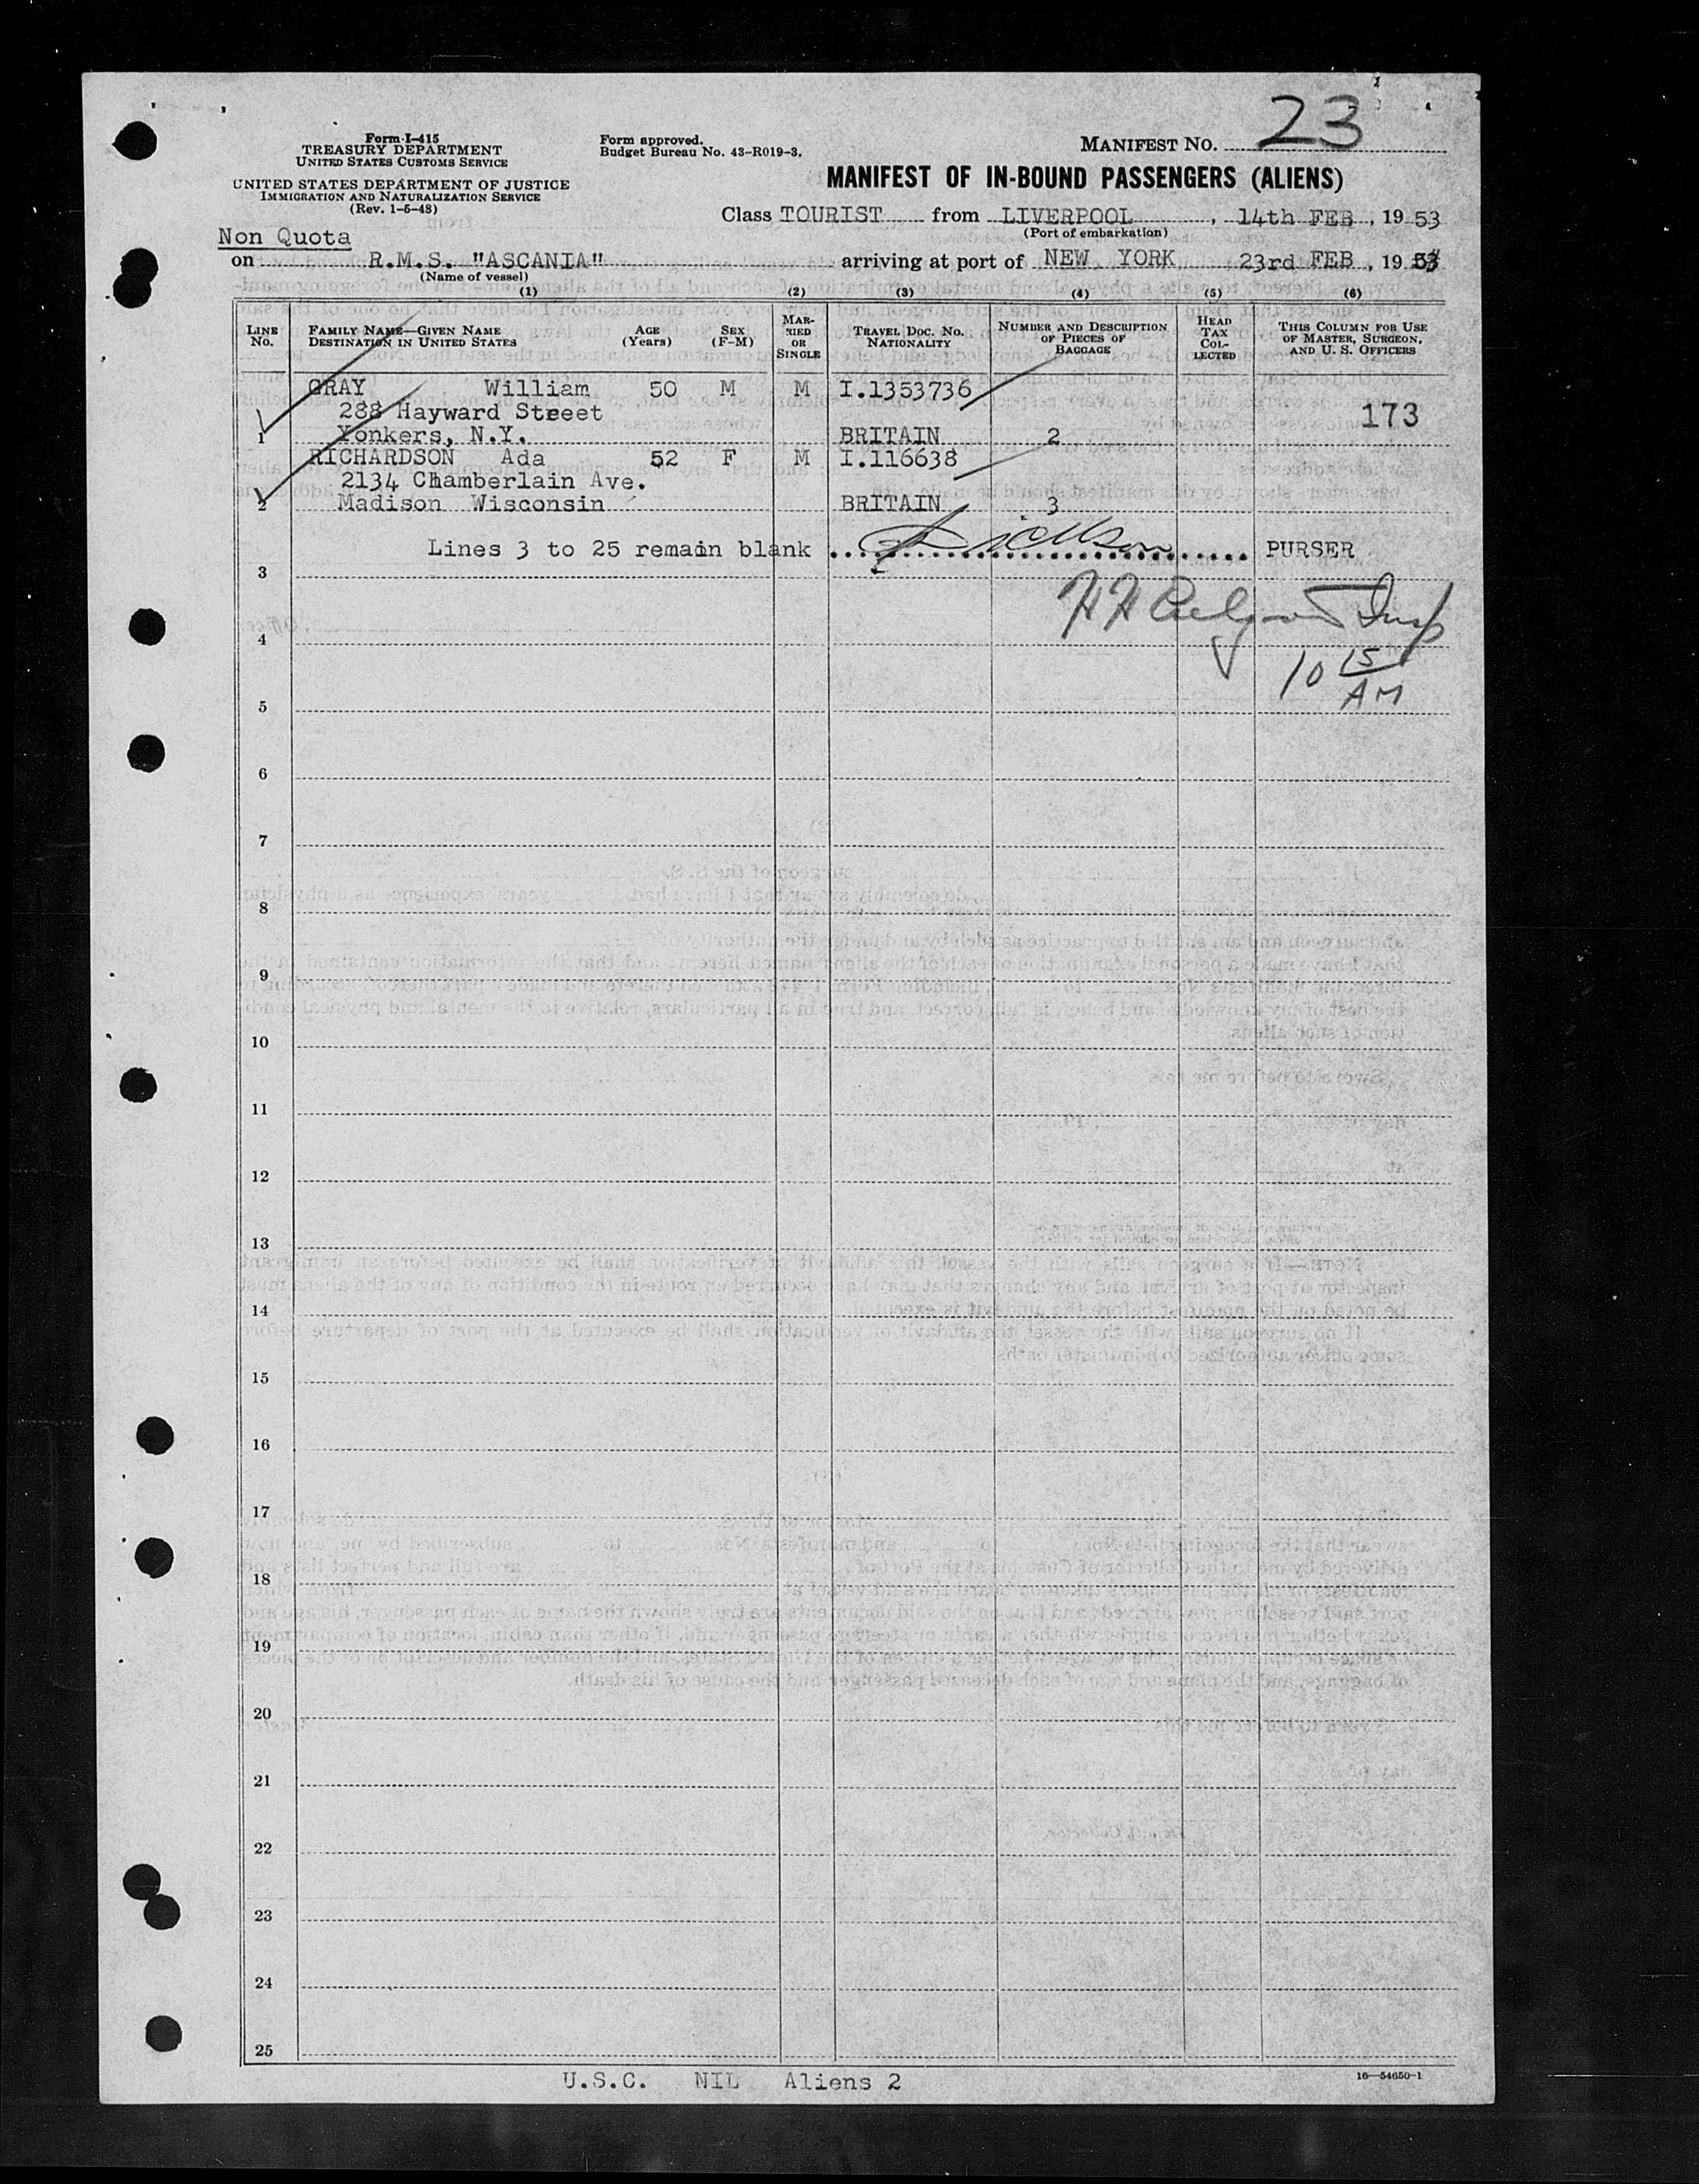 23
Form I-415
TREASURY DEPARTMENT
UNITED STATES CUSTOMS SERVICE
UNITED STATES DEPARTMENT OF JUSTICE
IMMIGRATION AND NATURALIZATION SERVICE
(Rev. 1-5-48)
Form approved.
Budget Bureau No. 43-R019-3.
MANIFEST NO.
MANIFEST OF IN-BOUND PASSENGERS (ALIENS)
Class TOURIST from LIVERPOOL, 14th FEB, 19 53
(Port of embarkation)
Non Quota
on R.M.S. "ASCANIA" arriving at port of NEW YORK 23rd FEB, 19 53
(Name of vessel)
(1) (2) (3) (4) (5) (6)
LINE No. FAMILY NAME—GIVEN NAME DESTINATION IN UNITED STATES AGE (Years) SEX (F-M) MARRIED OR SINGLE TRAVEL DOC. NO. NATIONALITY NUMBER AND DESCRIPTION OF PIECES OF BAGGAGE HEAD TAX COLLECTED THIS COLUMN FOR USE OF MASTER, SURGEON, AND U. S. OFFICERS
GRAY William 50 M M I.1353736
288 Hayward Streeet 173
1 Yonkers, N.Y. BRITAIN 2
RICHARDSON Ada 52 F M I.116638
2134 Chamberlain Ave.
2 Madison Wisconsin BRITAIN 3
Lines 3 to 25 remain blank PURSER
3
4
10 15 AM
5
6
7
8
9
10
11
12
13
14
15
16
17
18
19
20
21
22
23
24
25
U.S.C. NIL Aliens 2
16—54650-1